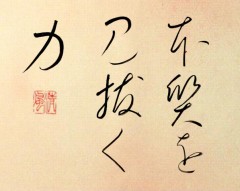 本質を
見抜く
力